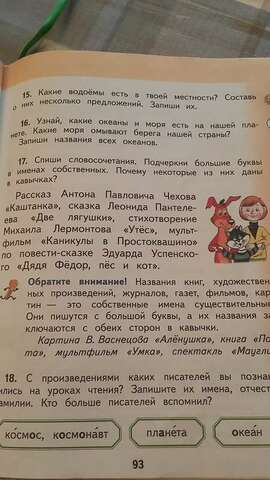 15. Какие водоёмы есть в твоей местности? Составь
о них несколько предложений. Запиши их.
16. Узнай, какие океаны и моря есть на нашей пла-
нете. Какие моря омывают берега нашей страны?
Запиши названия всех океанов.
17. Спиши словосочетания. Подчеркни большие буквы
в именах собственных. Почему некоторые из них даны
в кавычках?
Рассказ Антона Павловича Чехова
«Каштанка», сказка Леонида Пантеле-
ева «Две лягушки», стихотворение
Михаила Лермонтова «Утёс», муль­т-
фильм «Каникулы в Простоквашино»
по повести-сказке Эдуарда Успенско-
го «Дядя Фёдор, пёс и кот».
Обратите внимание! Названия книг, художествен-
ных произведений, журналов, газет, фильмов, кар-
тин — это собственные имена существительные.
Они пишутся с большой буквы, а их названия за-
ключаются с обеих сторон в кавычки.
Картина В. Васнецова «Алёнушка», книга
мультфильм «Умка», спектакль «Маугли
18. С произведениями каких писателей вы познако-
мились на уроках чтения? Запишите их имена, отчест
фамилии. Кто больше писателей вспомнил?
ко́смос, космона́вт плане́та океа́н
93